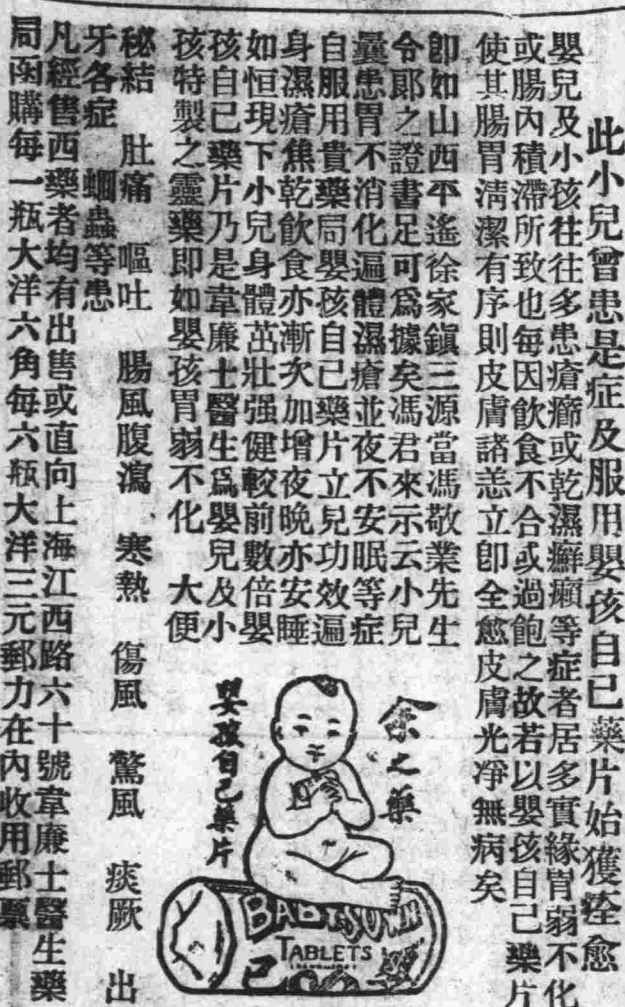 此小兒曾患是症及服用嬰孩自己藥片始獲痊愈
嬰兒及小孩往往多患瘡癤或乾濕癬癩等症者居多實緣胃弱不化
或腸內積滯所致也每因飲食不合或過飽之故若以嬰孩自己藥片
使其腸胃淸潔有序則皮膚諸恙立卽全愈皮膚光淨無病矣
卽如山西平遙徐家鎭三源當馮敬業先生
令郞之證書足可爲據矣馮君來示云小兒
曩患胃不消化遍體濕瘡並夜不安眠等症
自服用貴藥局嬰孩自己藥片立見功效遍
身濕瘡焦乾飲食亦漸次加增夜晚亦安睡
如恒現下小兒身體茁壯强健較前數倍嬰
孩自己藥片乃是韋廉士醫生爲嬰兒及小
孩特製之靈藥卽如嬰孩胃弱不化 大便
秘結 肚痛 嘔吐 腸風腹瀉 寒熱 傷風 驚風 痰厥 出
牙各症 蛔蟲等患
凡經售西藥者均有出售或直向上海江西路六十號韋廉士醫生藥
局函購每一瓶大洋六角每六瓶大洋三元郵力在內收用郵票
余之藥
嬰孩自己藥片
BABY'S OWN
TABLETS